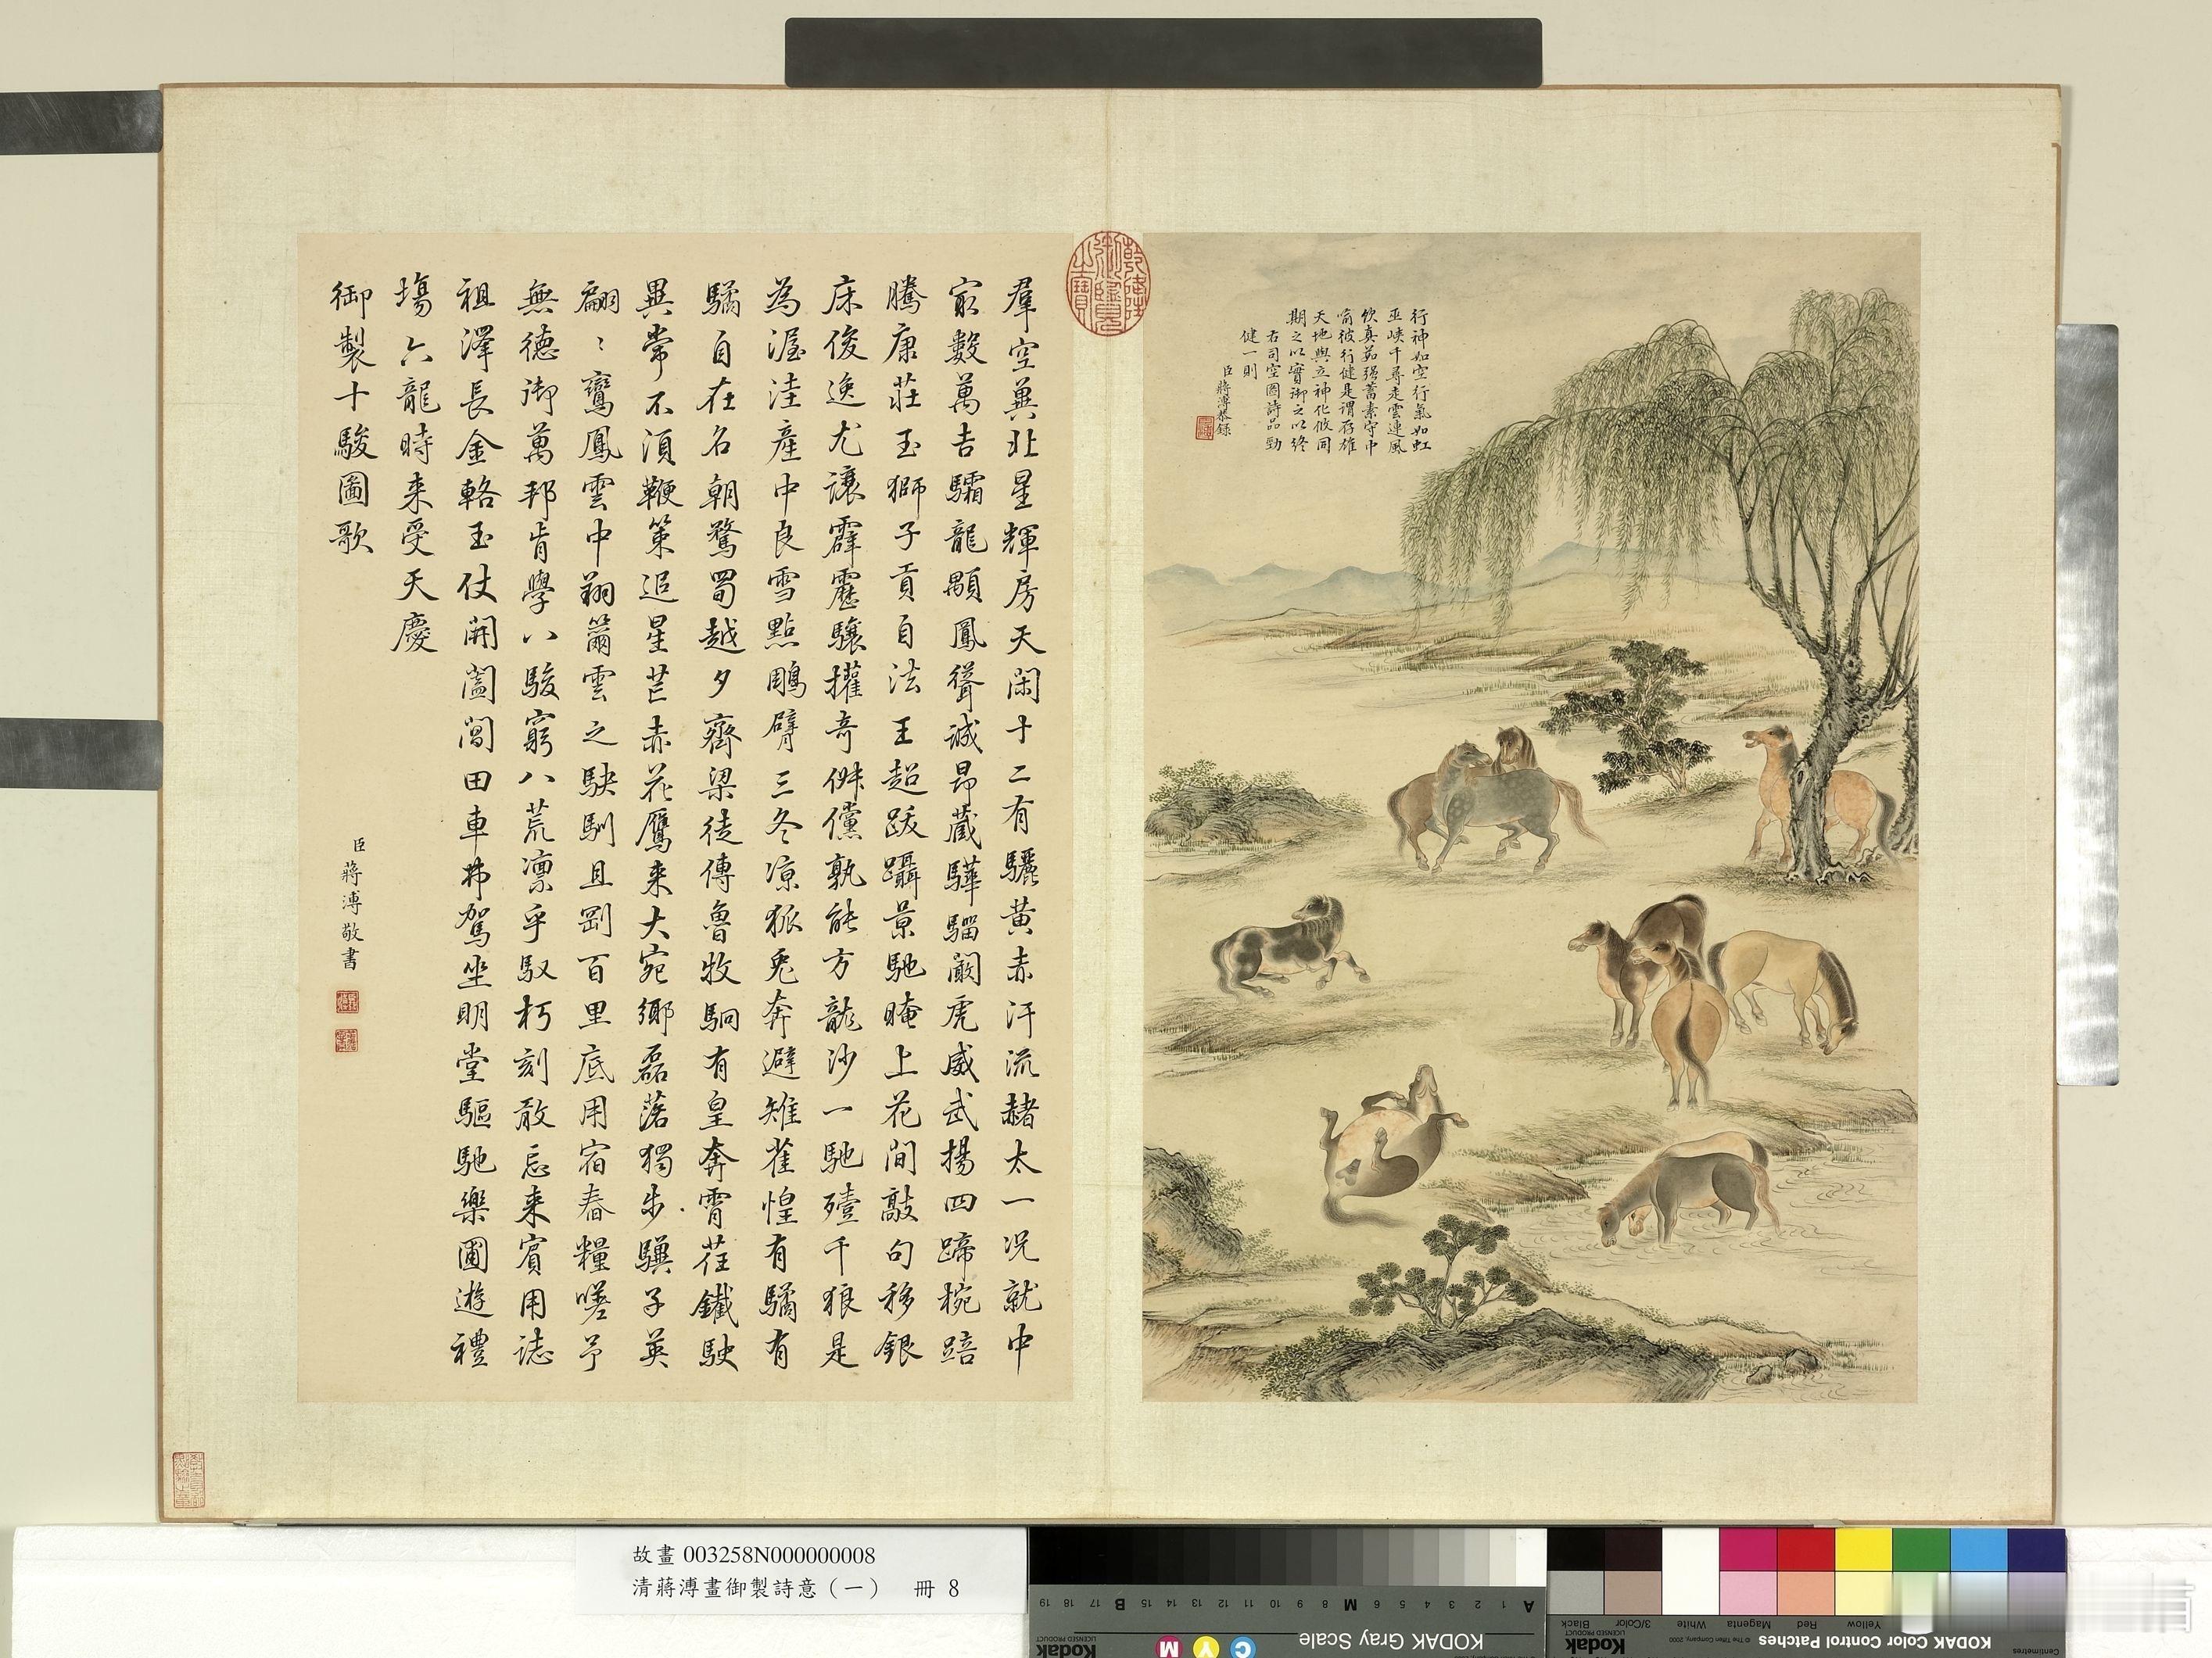 行神如空行氣如虹
巫峽千尋走雲連風
飲真茹強蓄素守中
喻彼行健是謂存雄
天地與立神化攸同
期之以實御之以終
右司空圖詩品勁
健一則
臣蔣溥恭錄
乾隆御覽之寶
羣空冀北星輝房天閑十二有驪黃赤汗流赭太一況就中
㝡數萬吉驦龍顒鳳聳誠昂藏驊騮闞虎威武揚四蹄椀踣
騰康莊玉獅子貢自法王超跋躡景馳晻上花間敲句移銀
床俊逸尤讓霹靂驤擢奇倜儻孰能方龍沙一馳殪千狼是
為渥洼產中良雪點鵰臂三冬涼狐兔奔避雉雀惶有驈有
驈自在名朝鶩蜀越夕齊梁徒傳魯牧駉有皇奔霄在鐵駛
異常不須鞭策追星芒赤花鷹來大宛鄉磊落獨步驥子英
翩〻鸞鳳雲中翔籋雲之駃馴且剛百里底用宿舂糧嗟予
無德御萬邦肯學八駿窮八荒凛乎馭朽刻敢忘來賓用誌
祖澤長金輅玉仗開閶闔田車弗駕坐明堂驅馳樂圃遊禮
場六龍時来受天慶
御製十駿圖歌
臣蔣溥敬書
故畫 003258N000000008
清蔣溥畫御製詩意（一） 冊 8
KODAK Gray Scale
Kodak
LICENSED PRODUCT
C Y M
A 1 2 3 4 5 6 M 8 9 10 11 12 13 14 15 B 17 18 19
KODAK Color Control Patches
© The Tiffen Company, 2000
Kodak
LICENSED PRODUCT
Centimetres
Yellow Red Magenta White 3/Color Black